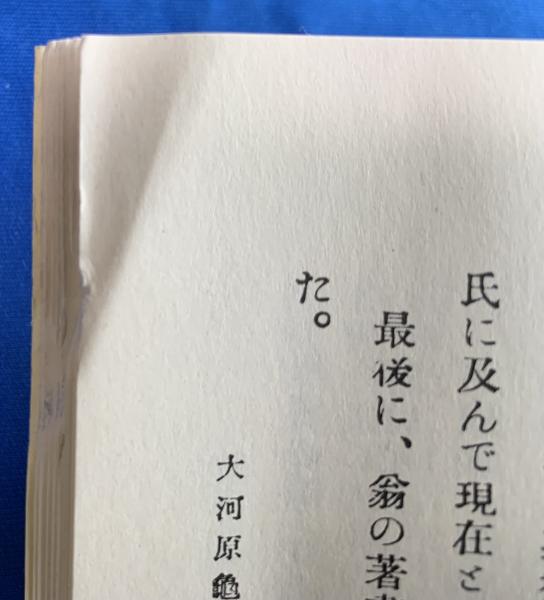 氏に及んで現在と
最後に、翁の著
た。
大河原亀